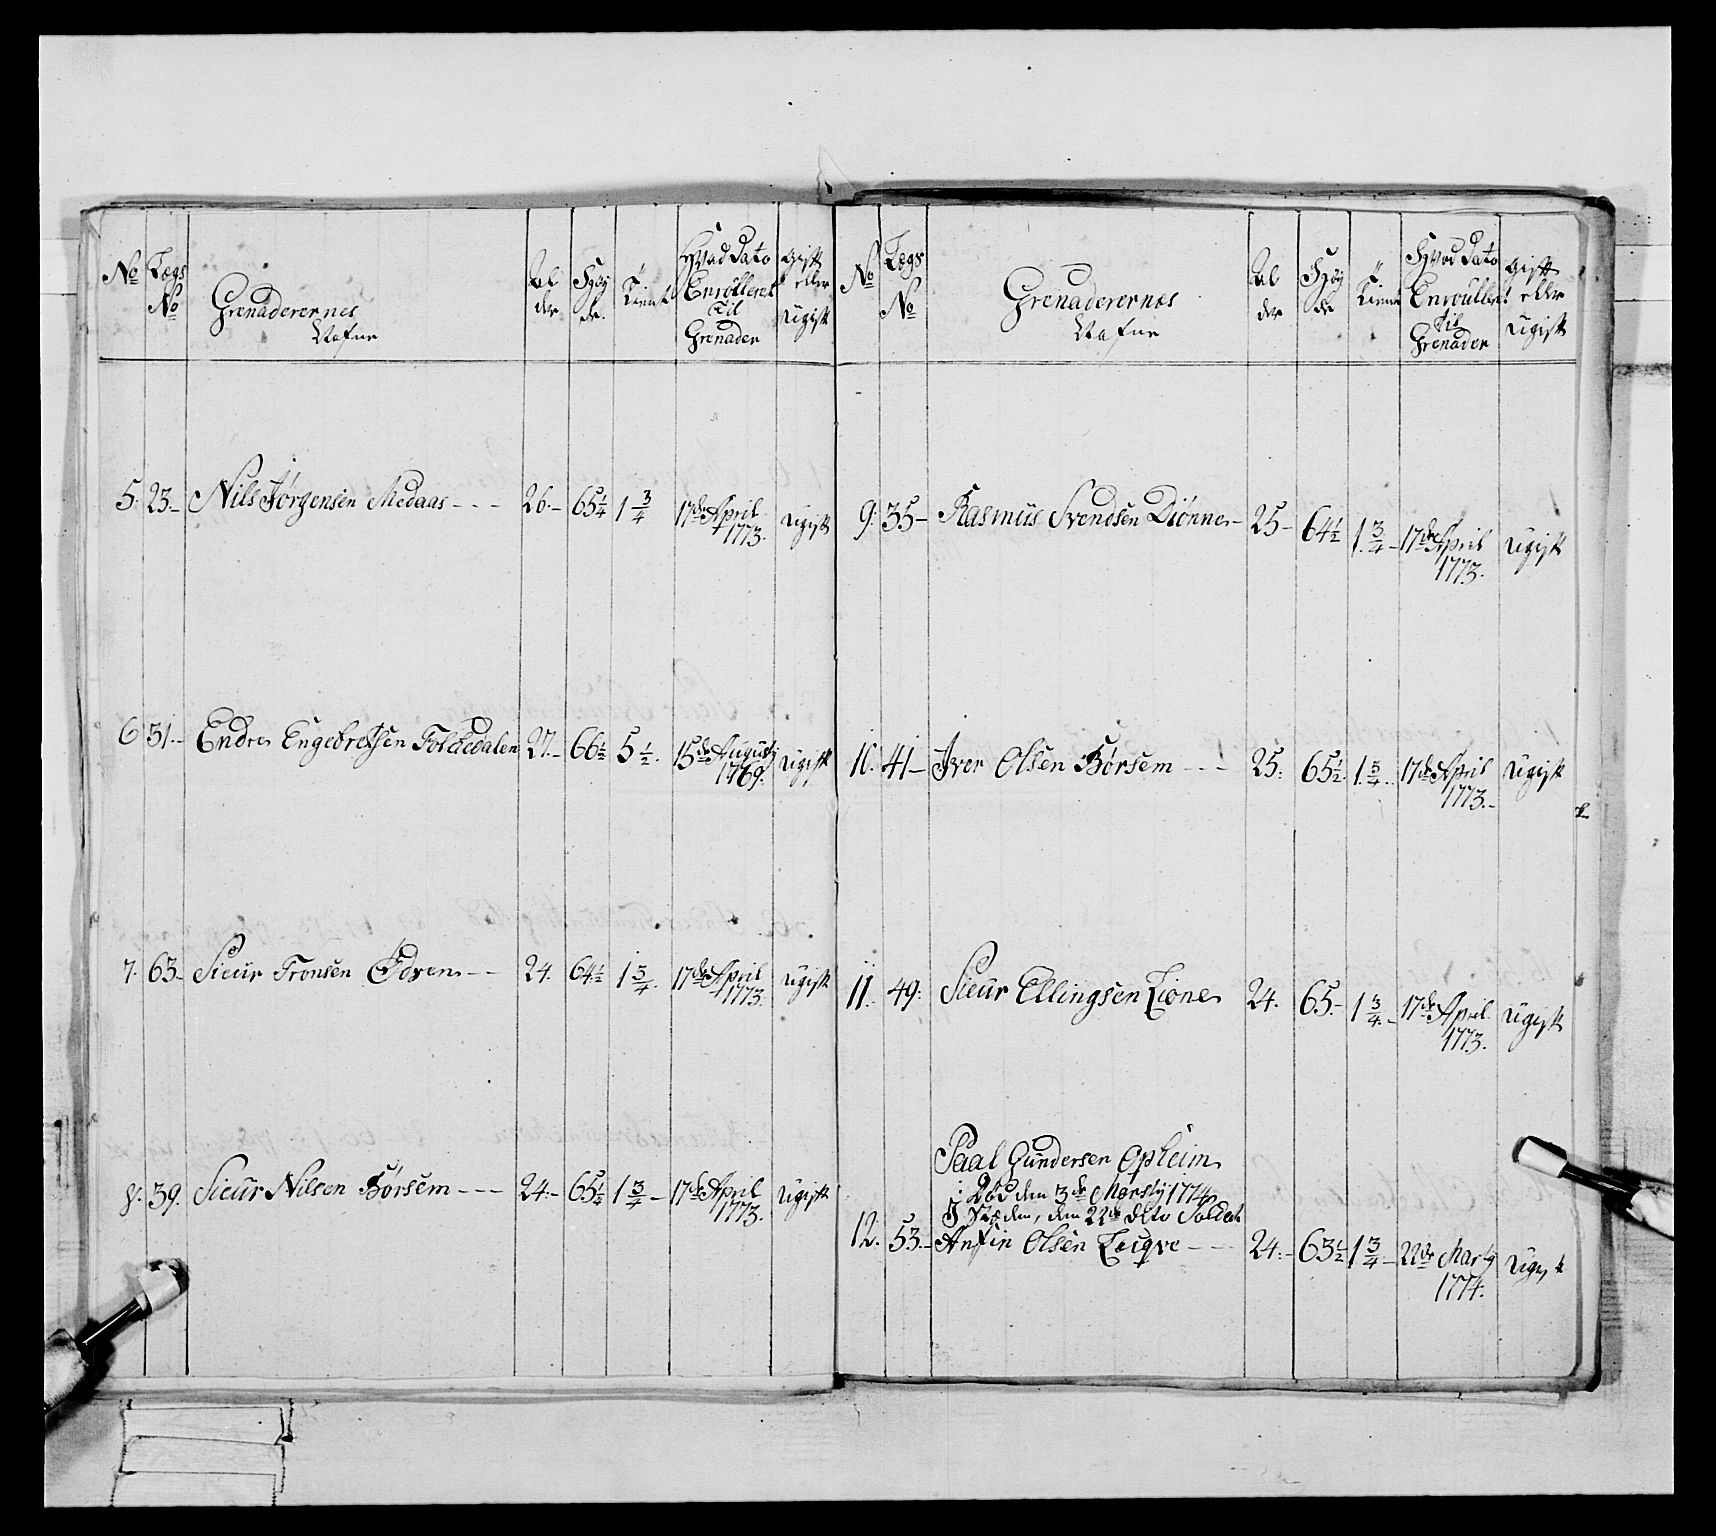 No Lægs No Grenaderernes Nafne Al der Høy de Tient Hvad Dato Enrolleret til Grenader Gift eller Ugift
5. 23.- Nils Jørgensen Medaas - - - 26.- 65 1/4 1 3/4 17de April 1773. Ugift
6 31.- Endre Engebretsen Folkedalen 27.- 66 1/2 5 1/2. 15de Augusty 1769. Ugift
7. 63.- Siur Tronsen Ødven - - 24. 64 1/2 1 3/4. 17de April 1773. Ugift
8. 39. Siur Nilsen Børsem - - - 24.- 65 1/4 1 3/4 - 17de April 1773. Ugift
No Lægs No Grenaderernes Nafne Al der Høy de Tient Hvad Dato Enroulleret til Grenader Gift eller Ugift
9. 35- Rasmus Svendsen Diønne - 25- 64 1/2 1 3/4 - 17de April 1773. Ugift
10. 41- Iver Olsen Børsem - - - 25. 65 1/2. 1 3/4. 17de April 1773.- Ugift
11. 49. Siur Ellingsen Lione 24. 65.- 1 3/4.- 17de April 1773. Ugift
Paal Gundersen Opheim
Død den 3de Marsty 1774
I Stæden, den 22de dito Soldat
12. 53.- Anfin Olsen Leqve - - - 24.- 63 1/2 1 3/4 - 22de Marty 1774. Ugift